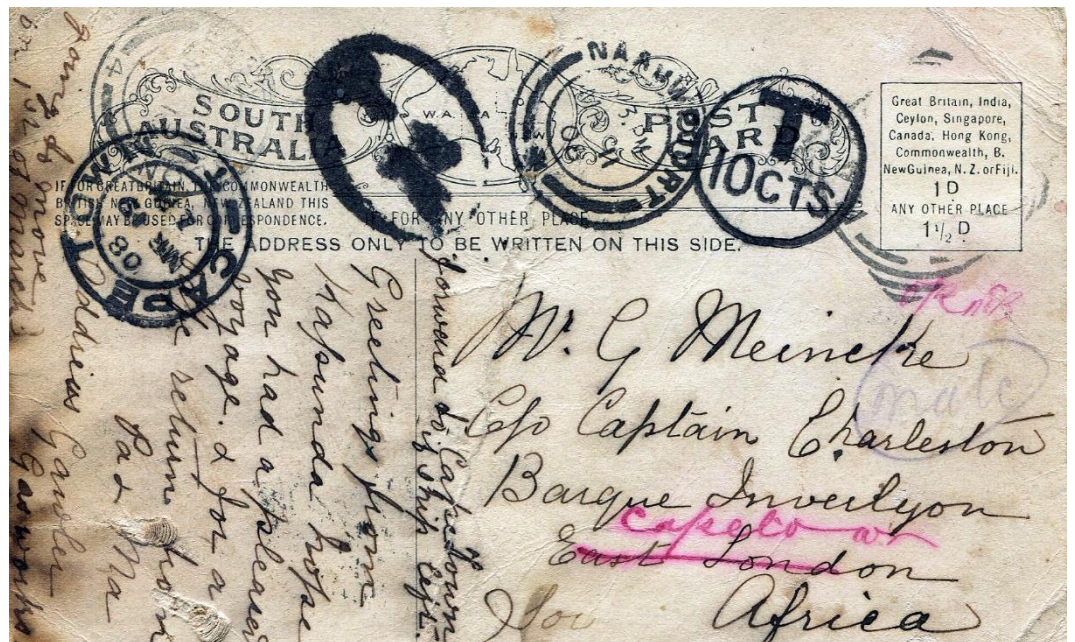 SOUTH
AUSTRALIA
W.A.
POST
CARD
IF FOR GREAT BRITAIN, THE COMMONWEALTH
BRITISH NEW GUINEA, NEW ZEALAND THIS
SPACE MAY BE USED FOR CORRESPONDENCE.
IF FOR ANY OTHER PLACE
THE ADDRESS ONLY TO BE WRITTEN ON THIS SIDE.
Great Britain, India,
Ceylon, Singapore,
Canada, Hong Kong,
Commonwealth, B.
New Guinea, N.Z. or Fiji.
1D
ANY OTHER PLACE
1½D
T
10CTS
CAPE TOWN
08
Mr. G Meincke
C/o Captain Charleston
Barque Inverlyon
Capetown
East London
Africa
mate
forward to Capetown
if ship
Greetings from
Kapunda hope
you had a pleasant
voyage & for a
return from
Pa & Ma
Address Gawler
Gasworks
going to move
on 1st of march